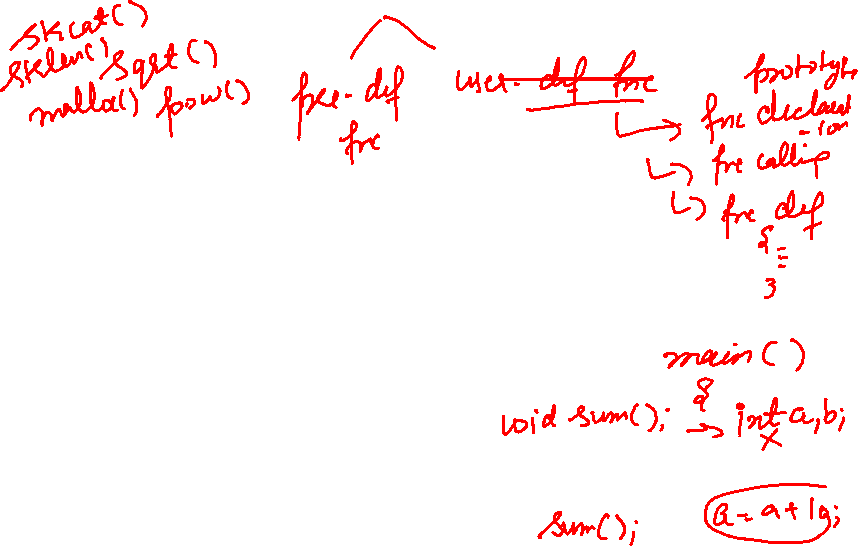 strcat()
strlen() sqrt()
malloc() pow()
pre-def
fnc
user-def fnc
prototype
fnc declarat
-ion
fnc calling
fnc def
{
}
main()
{
void sum(); → int a,b;
x
sum();
a=a+10;